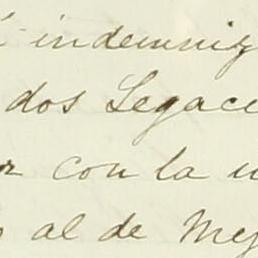 indemniz
dos Legac
con la
al de Mej